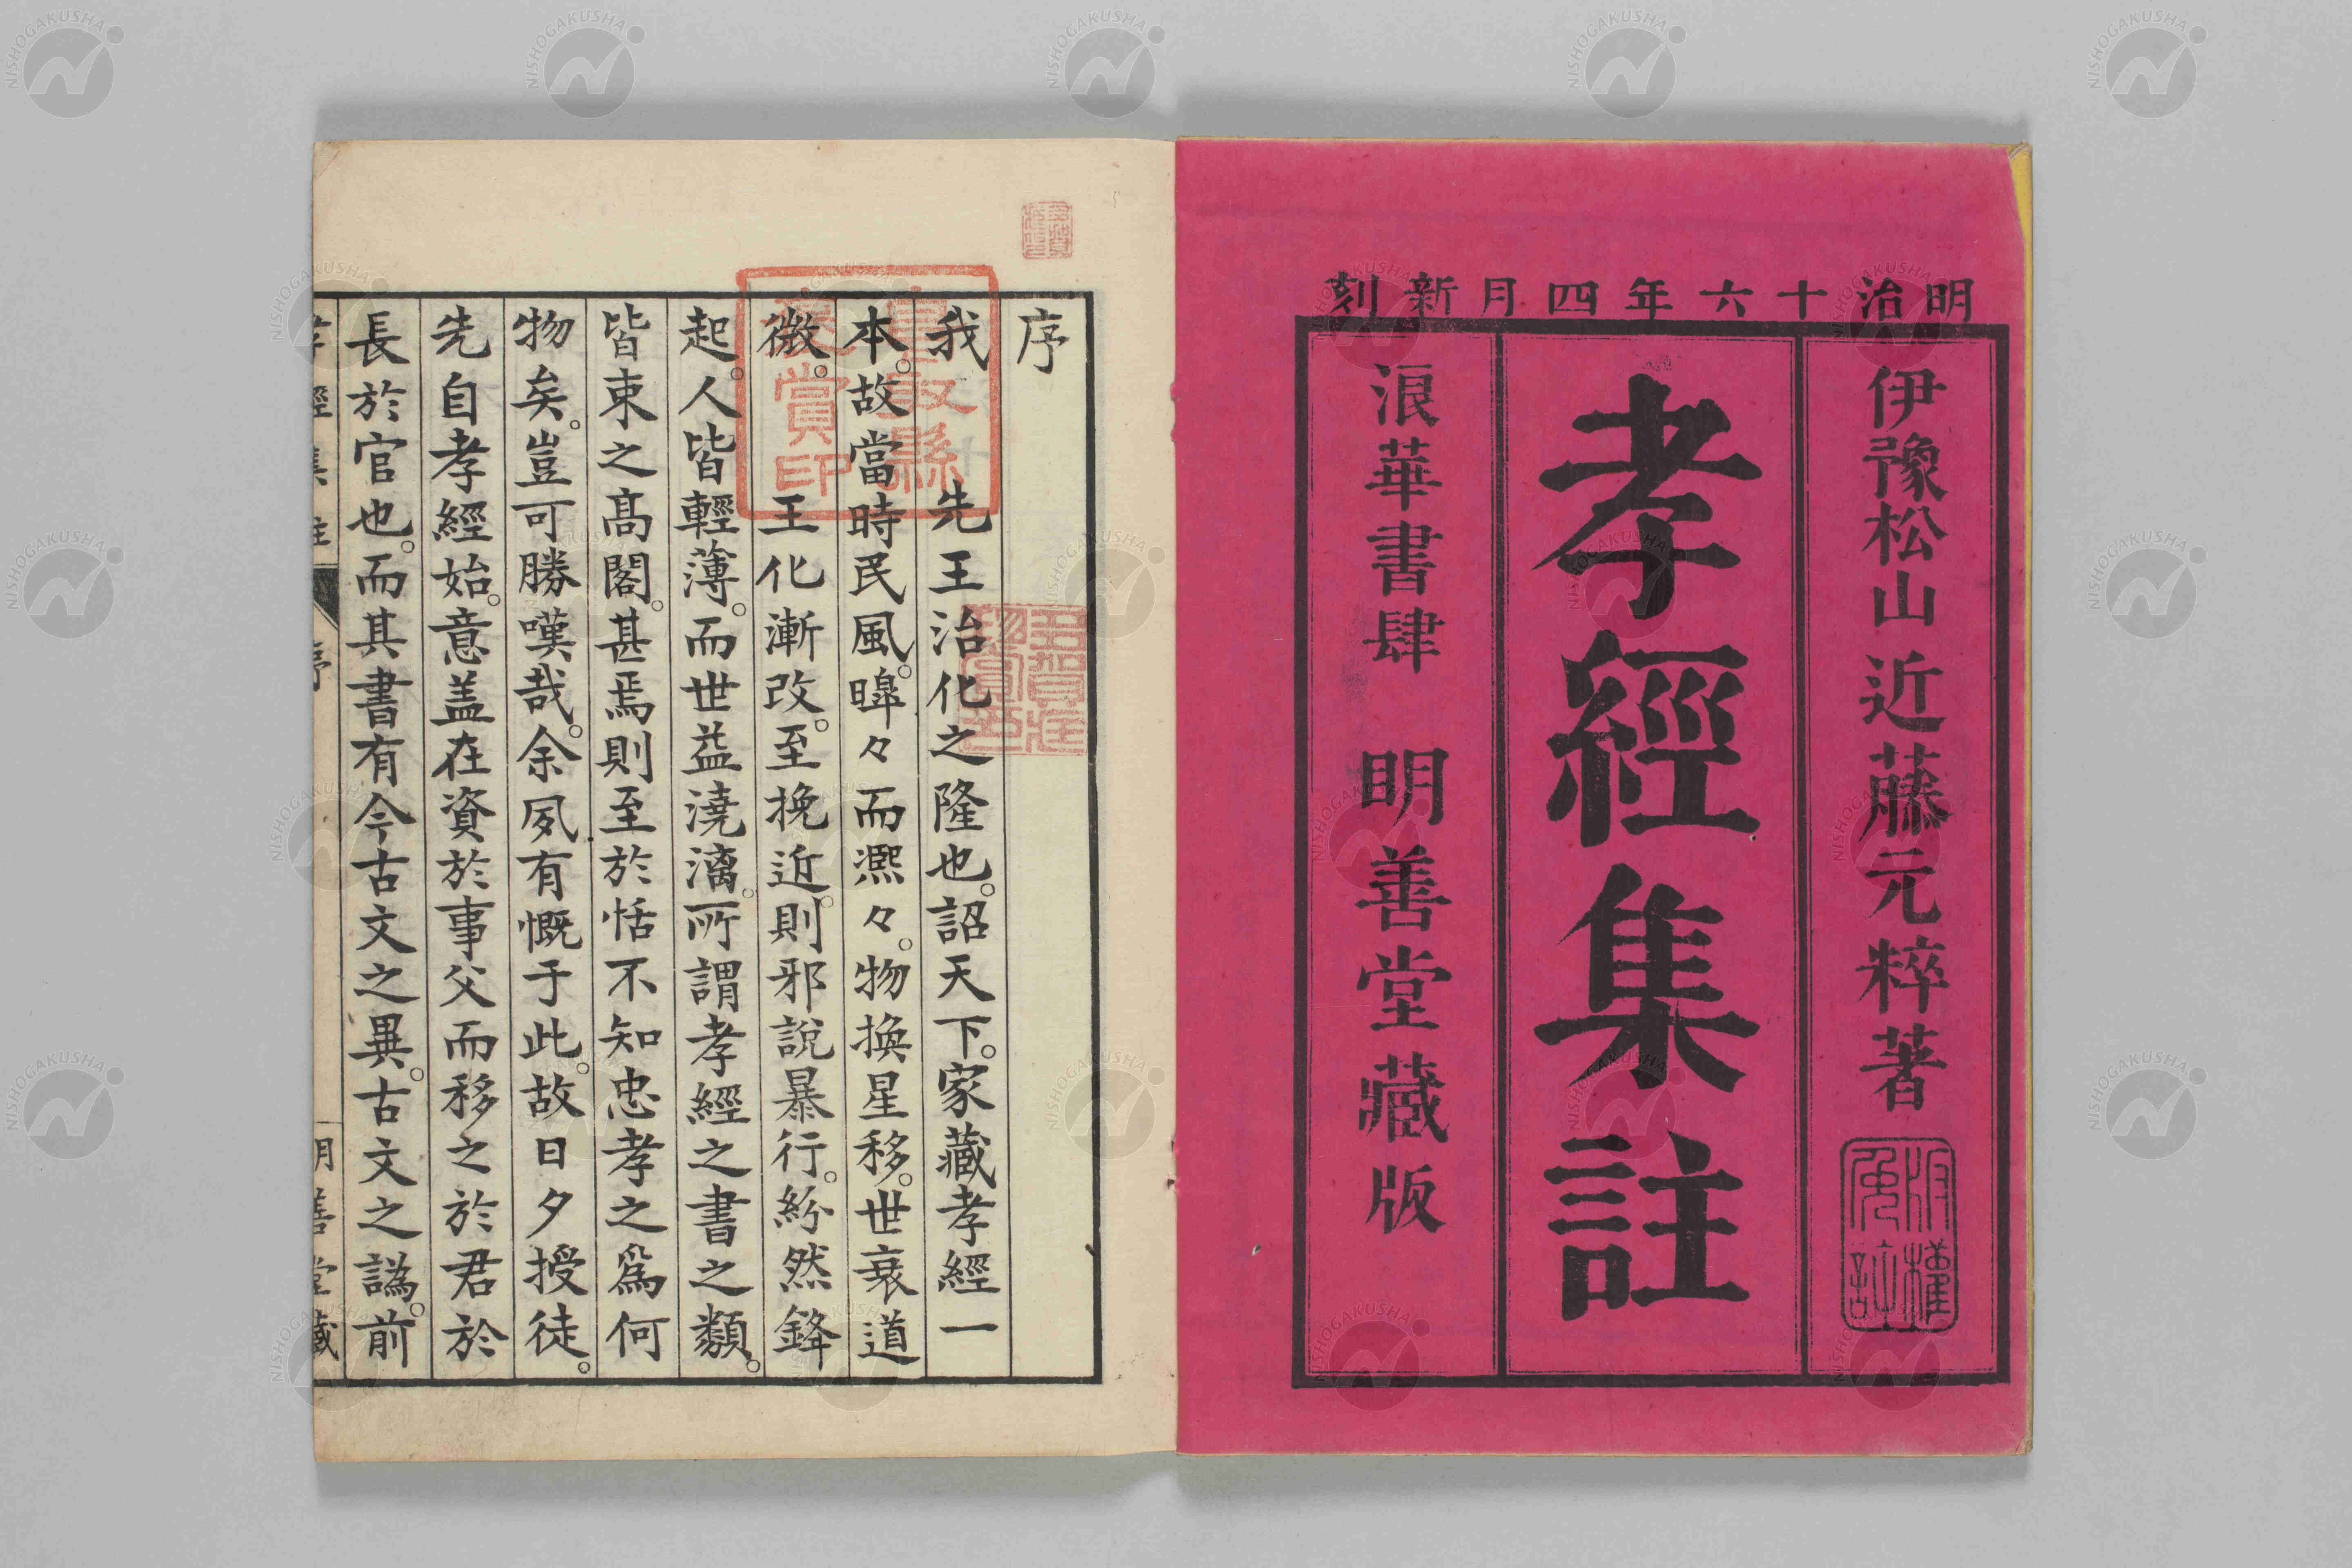 明治十六年四月新刻
伊豫松山 近藤元粹著
版權免許
孝經集註
浪華書肆 明善堂藏版
序
我 先王治化之隆也。詔天下。家藏孝經一
本。故當時民風。皥々而凞々。物換星移。世衰道
微。 王化漸改。至挽近。則邪說暴行。紛然鋒
起。人皆輕薄。而世益澆漓。所謂孝經之書之類。
皆束之髙閣。甚焉則至於恬不知忠孝之爲何
物矣。豈可勝嘆哉。余夙有慨于此。故日夕授徒。
先自孝經始。意盖在資於事父而移之於君於
長於官也。而其書有今古文之異。古文之譌。前
孝經集註 序 明善堂藏
鳥取縣
賞印
NISHOGAKUSHA